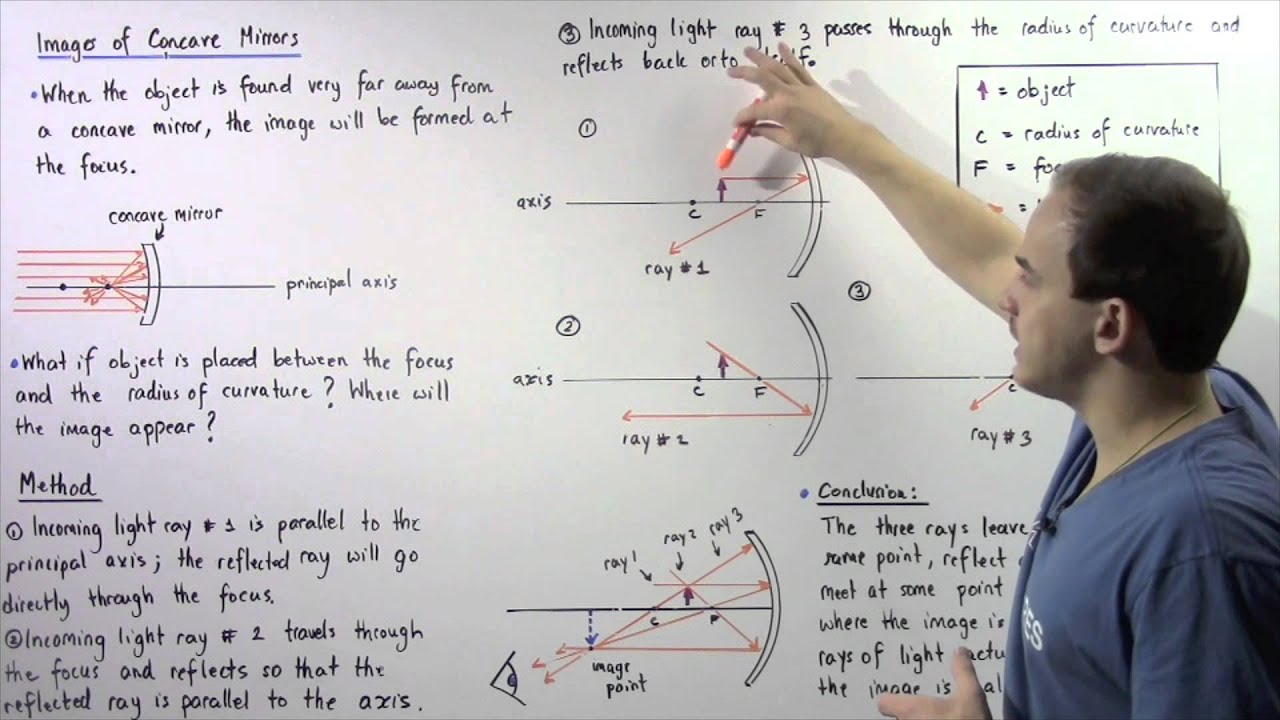 Images of Concave Mirrors
• When the object is found very far away from
a concave mirror, the image will be formed at
the focus.
concave mirror
principal axis
• What if object is placed between the focus
and the radius of curvature? Where will
the image appear?
Method
① Incoming light ray # 1 is parallel to the
principal axis; the reflected ray will go
directly through the focus.
② Incoming light ray # 2 travels through
the focus and reflects so that the
reflected ray is parallel to the axis.
③ Incoming light ray # 3 passes through the radius of curvature and
reflects back onto
①
axis
C
F
ray # 1
②
axis
C
F
ray # 2
ray 1
ray 2
ray 3
C
F
image
point
= object
C = radius of curvature
F =
=
③
C
ray # 3
• Conclusion:
The three rays leave
same point, reflect
meet at some point
where the image is
rays of light
the image is